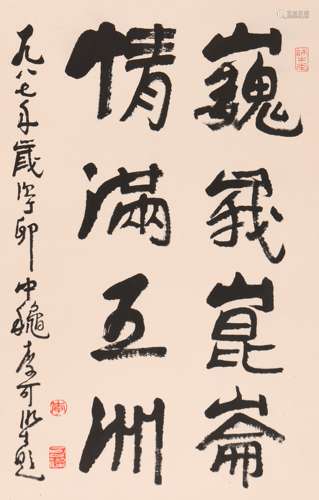 巍峩崑崙
情滿五洲
一九八七年歲次丁卯中龝李可染題